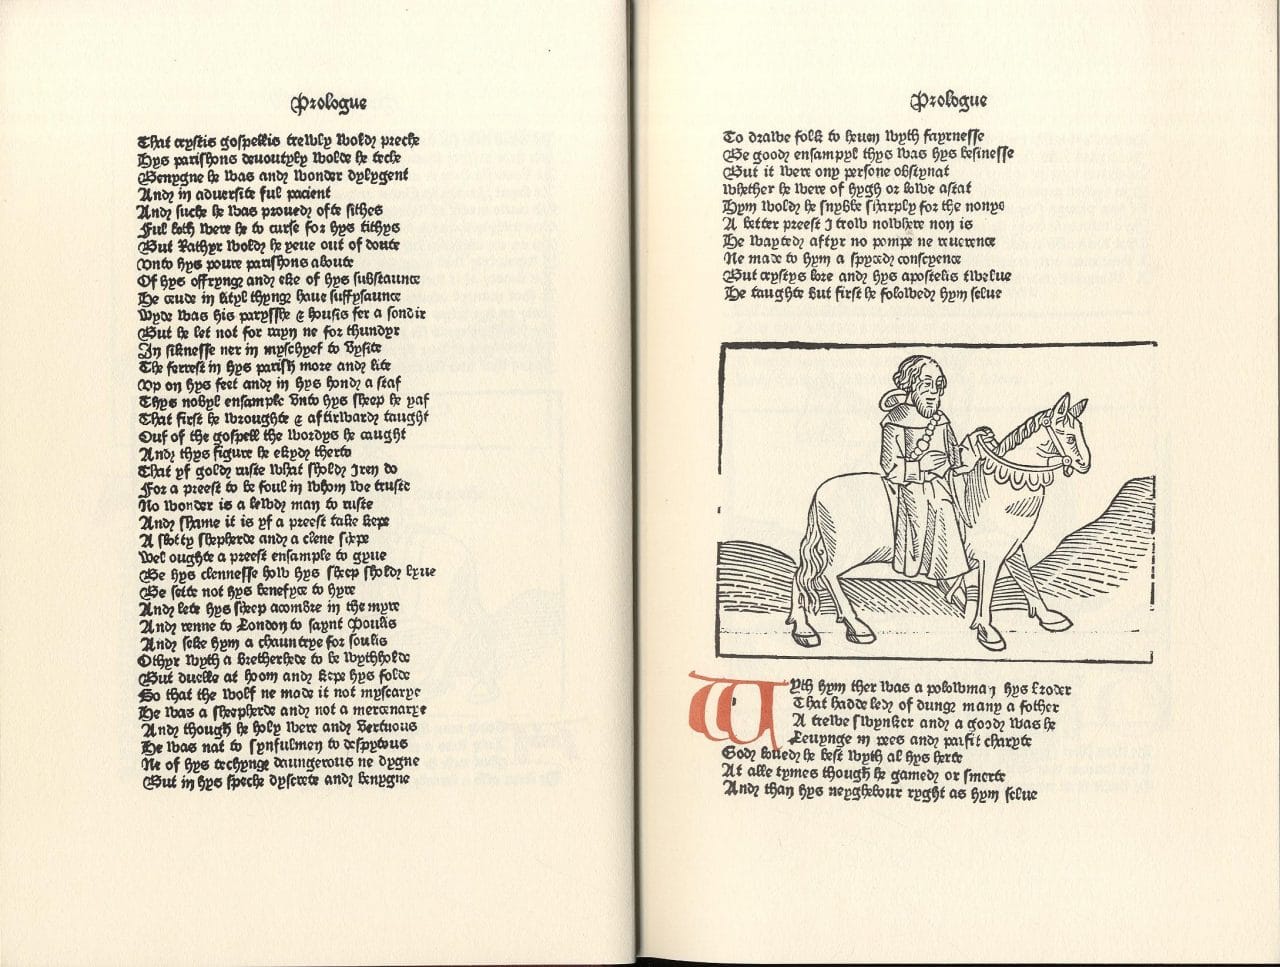 Prologue
That crystis gospellis trewly wold preche
Hys parishons deuoutyly wolde he teche
Benygne he was and wonder dylygent
And in aduersite ful pacient
And suche he was proued ofte sithes
Ful loth were he to curse for hys tithys
But Rathyr wold he yeue out of doute
Vnto hys poure parishons aboute
Of hys offryng and eke of hys substaunce
He coude in lityl thyng haue suffysaunce
Wyde was his parysshe & housis fer a sondir
But he let not for rayn ne for thundyr
In siknesse ner in myschyef to vysite
The ferrest in hys parish more and lite
Vp on hys feet and in hys hond a staf
Thys nobyl ensample vnto hys sheep he yaf
That first he wroughte & aftirward taught
Out of the gospell the wordys he caught
And thys figure he ekyd therto
That yf gold ruste what shold Iren do
For a preest to be foul in whom we truste
No wonder is a lewd man to ruste
And shame it is yf a preest take kepe
A shotty shepherde and a clene shepe
Wel oughte a preest ensample to gyue
Be hys clennesse how hys sheep shold lyue
He sette not hys benefyce to hyre
And lete hys sheep acombre in the myre
And renne to London to saynt Poulis
And seke hym a chauntrye for soulis
Othyr wyth a bretherhede to be wythholde
But duelle at hoom and kepe hys folde
So that the wolf ne made it not myscarye
He was a sheepherde and not a mercenarye
And though he holy were and vertuous
He was nat to synfulmen to despytous
Ne of hys techyng daungerous ne dygne
But in hys speche dyscrete and benygne
Prologue
To drawe folk to heuen wyth fayrnesse
Be good ensampyl thys was hys besinesse
But it were ony persone obstynat
Whether he were of hygh or lowe astat
Hym wold he snybbe sharply for the nonys
A better preest I trow nowhere non is
He wayted aftyr no pompe ne reuerence
Ne made to hym a spyced conscyence
But crystys lore and hys apostelis twelue
He taughte but first he folowed hym selue
Wyth hym ther was a polowman hys broder
That hadde led of dung many a fother
A trewe swynker and a good was he
Leuynge in pees and parfit charyte
God loued he best wyth al hys herte
At alle tymes though he gamed or smerte
And than hys neyghebour ryght as hym selue